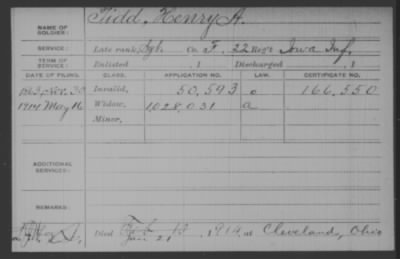 NAME OF SOLDIER: Tidd, Henry A.
SERVICE: Late rank, Co. F, 22 Reg't Iowa Inf.
TERM OF SERVICE: Enlisted , 1 Discharged , 1
DATE OF FILING. CLASS. APPLICATION NO. LAW. CERTIFICATE NO.
1863, Nov. 30 Invalid, 50,593 o 166,550
1914 May 16 Widow, 1028,031 a
Minor,
ADDITIONAL SERVICES:
REMARKS:
Died Jan 21, 1914, at Cleveland, Ohio